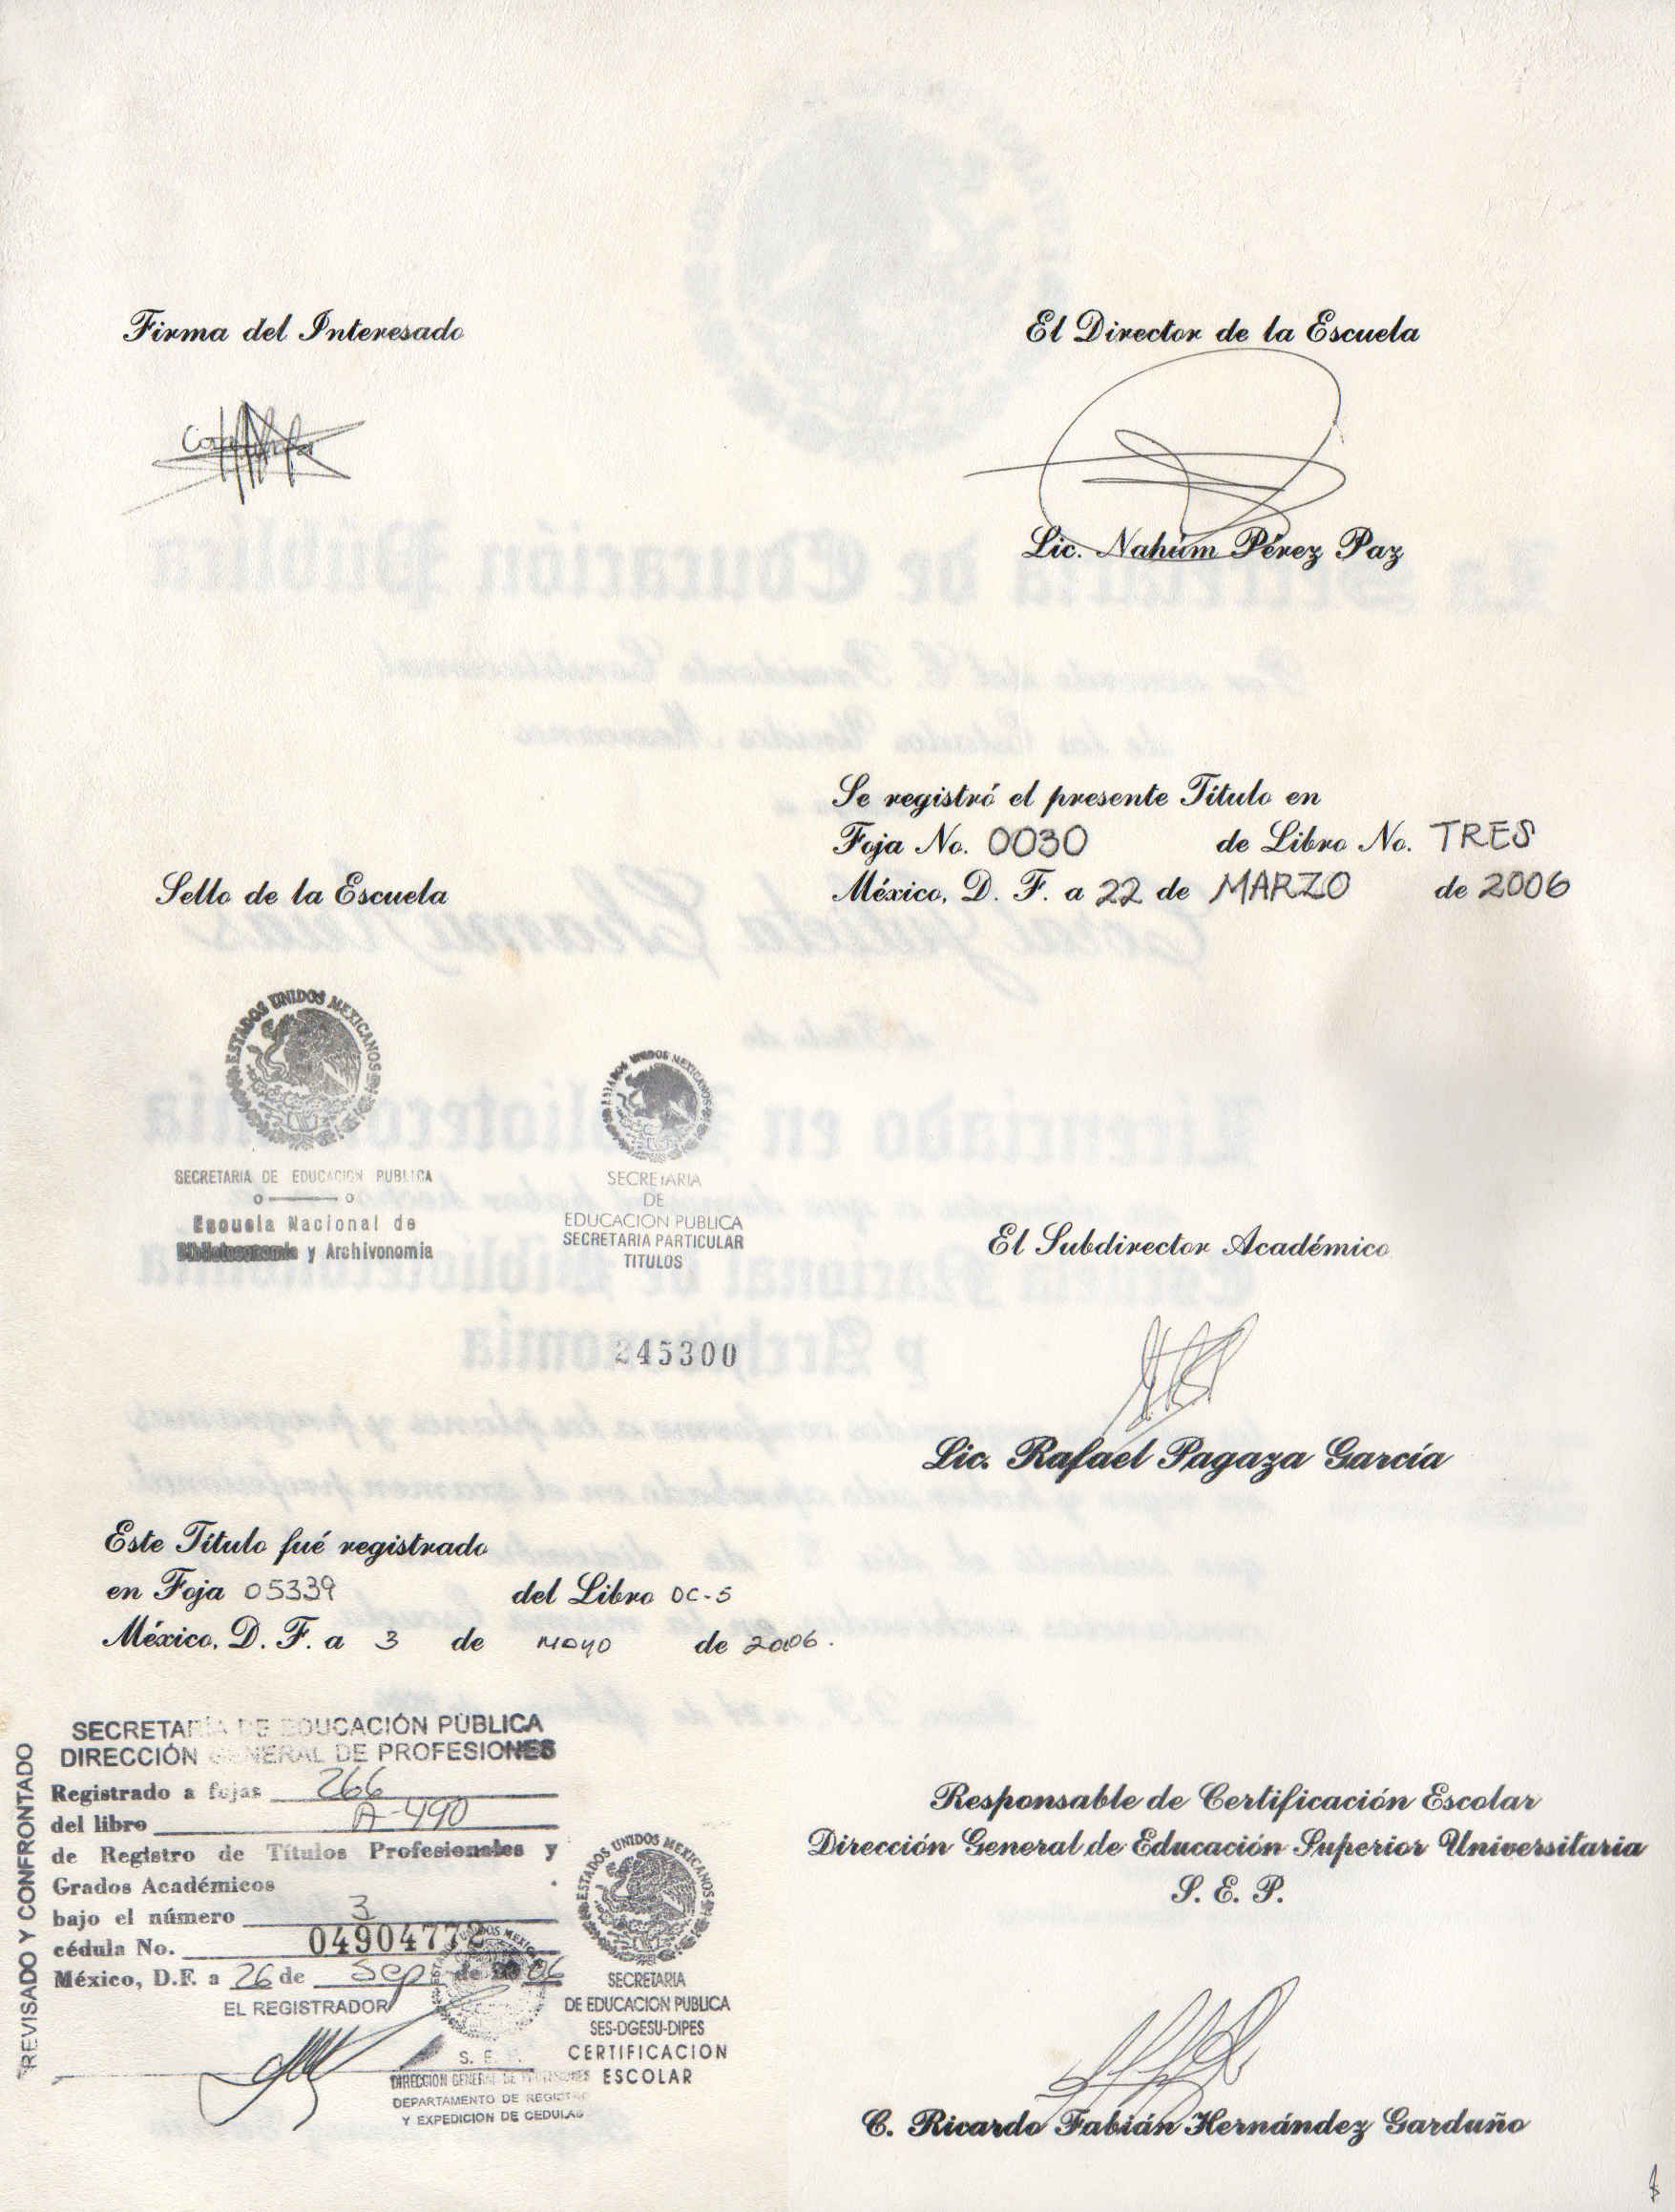 Firma del Interesado
El Director de la Escuela
Lic. Nahúm Pérez Paz
Se registró el presente Título en
Foja No. 0030 de Libro No. TRES
México, D. F. a 22 de MARZO de 2006
Sello de la Escuela
ESTADOS UNIDOS MEXICANOS
SECRETARIA DE EDUCACION PUBLICA
Escuela Nacional de
Biblioteconomia y Archivonomia
ESTADOS UNIDOS MEXICANOS
SECRETARIA
DE
EDUCACION PUBLICA
SECRETARIA PARTICULAR
TITULOS
245300
El Subdirector Académico
Lic. Rafael Pagaza García
Este Título fué registrado
en Foja 05339 del Libro DC-5
México, D. F. a 3 de mayo de 2006.
REVISADO Y CONFRONTADO
SECRETARÍA DE EDUCACIÓN PÚBLICA
DIRECCIÓN GENERAL DE PROFESIONES
Registrado a fojas 266
del libro A-490
de Registro de Títulos Profesionales y
Grados Académicos
bajo el número 3
cédula No. 04904772
México, D.F. a 26 de Sep de 2006
EL REGISTRADOR
S. E. P.
DIRECCION GENERAL DE PROFESIONES
DEPARTAMENTO DE REGISTRO
Y EXPEDICION DE CEDULAS
ESTADOS UNIDOS MEXICANOS
SECRETARIA
DE EDUCACION PUBLICA
SES-DGESU-DIPES
CERTIFICACION
ESCOLAR
Responsable de Certificación Escolar
Dirección General de Educación Superior Universitaria
S. E. P.
C. Ricardo Fabián Hernández Garduño